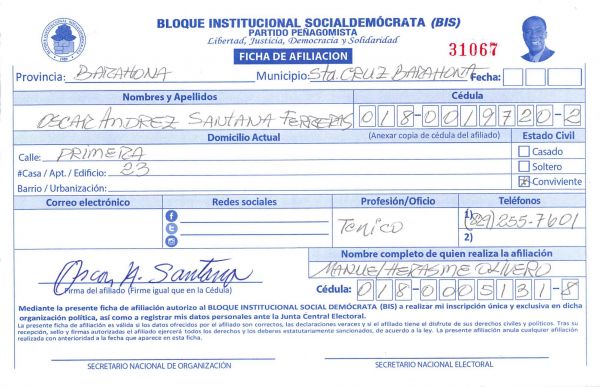 BLOQUE INSTITUCIONAL SOCIALDEMÓCRATA (BIS)
PARTIDO PEÑAGOMISTA
Libertad, Justicia, Democracia y Solidaridad
FICHA DE AFILIACION
31067
Provincia: BARAHONA Municipio: Sta. CRUZ BARAHONA Fecha:
Nombres y Apellidos Cédula
OSCAR ANDREZ SANTANA FERRERAS 018-0019720-2
Domicilio Actual (Anexar copia de cédula del afiliado) Estado Civil
Calle: PRIMERA Casado
#Casa / Apt. / Edificio: 23 Soltero
Barrio / Urbanización: Conviviente
Correo electrónico Redes sociales Profesión/Oficio Teléfonos
Tenico 1) (829) 255-7601
2)
Nombre completo de quien realiza la afiliación
MANUEL HERASME OLIVERO
Oscar A. Santana
Firma del afiliado (Firme igual que en la Cédula) Cédula: 018-0005131-8
Mediante la presente ficha de afiliación autorizo al BLOQUE INSTITUCIONAL SOCIAL DEMÓCRATA (BIS) a realizar mi inscripción única y exclusiva en dicha
organización política, así como a registrar mis datos personales ante la Junta Central Electoral.
La presente ficha de afiliación es válida si los datos ofrecidos por el afiliado son correctos, las declaraciones veraces y si el afiliado tiene el disfrute de sus derechos civiles y políticos. Tras su
recepción, sello y firmas autorizadas el afiliado ejercerá todos los derechos y los deberes estatutariamente sancionados, de acuerdo a la ley. La presente afiliación anula cualquier afiliación
realizada con anterioridad a la fecha que aparece en esta ficha.
SECRETARIO NACIONAL DE ORGANIZACIÓN SECRETARIO NACIONAL ELECTORAL